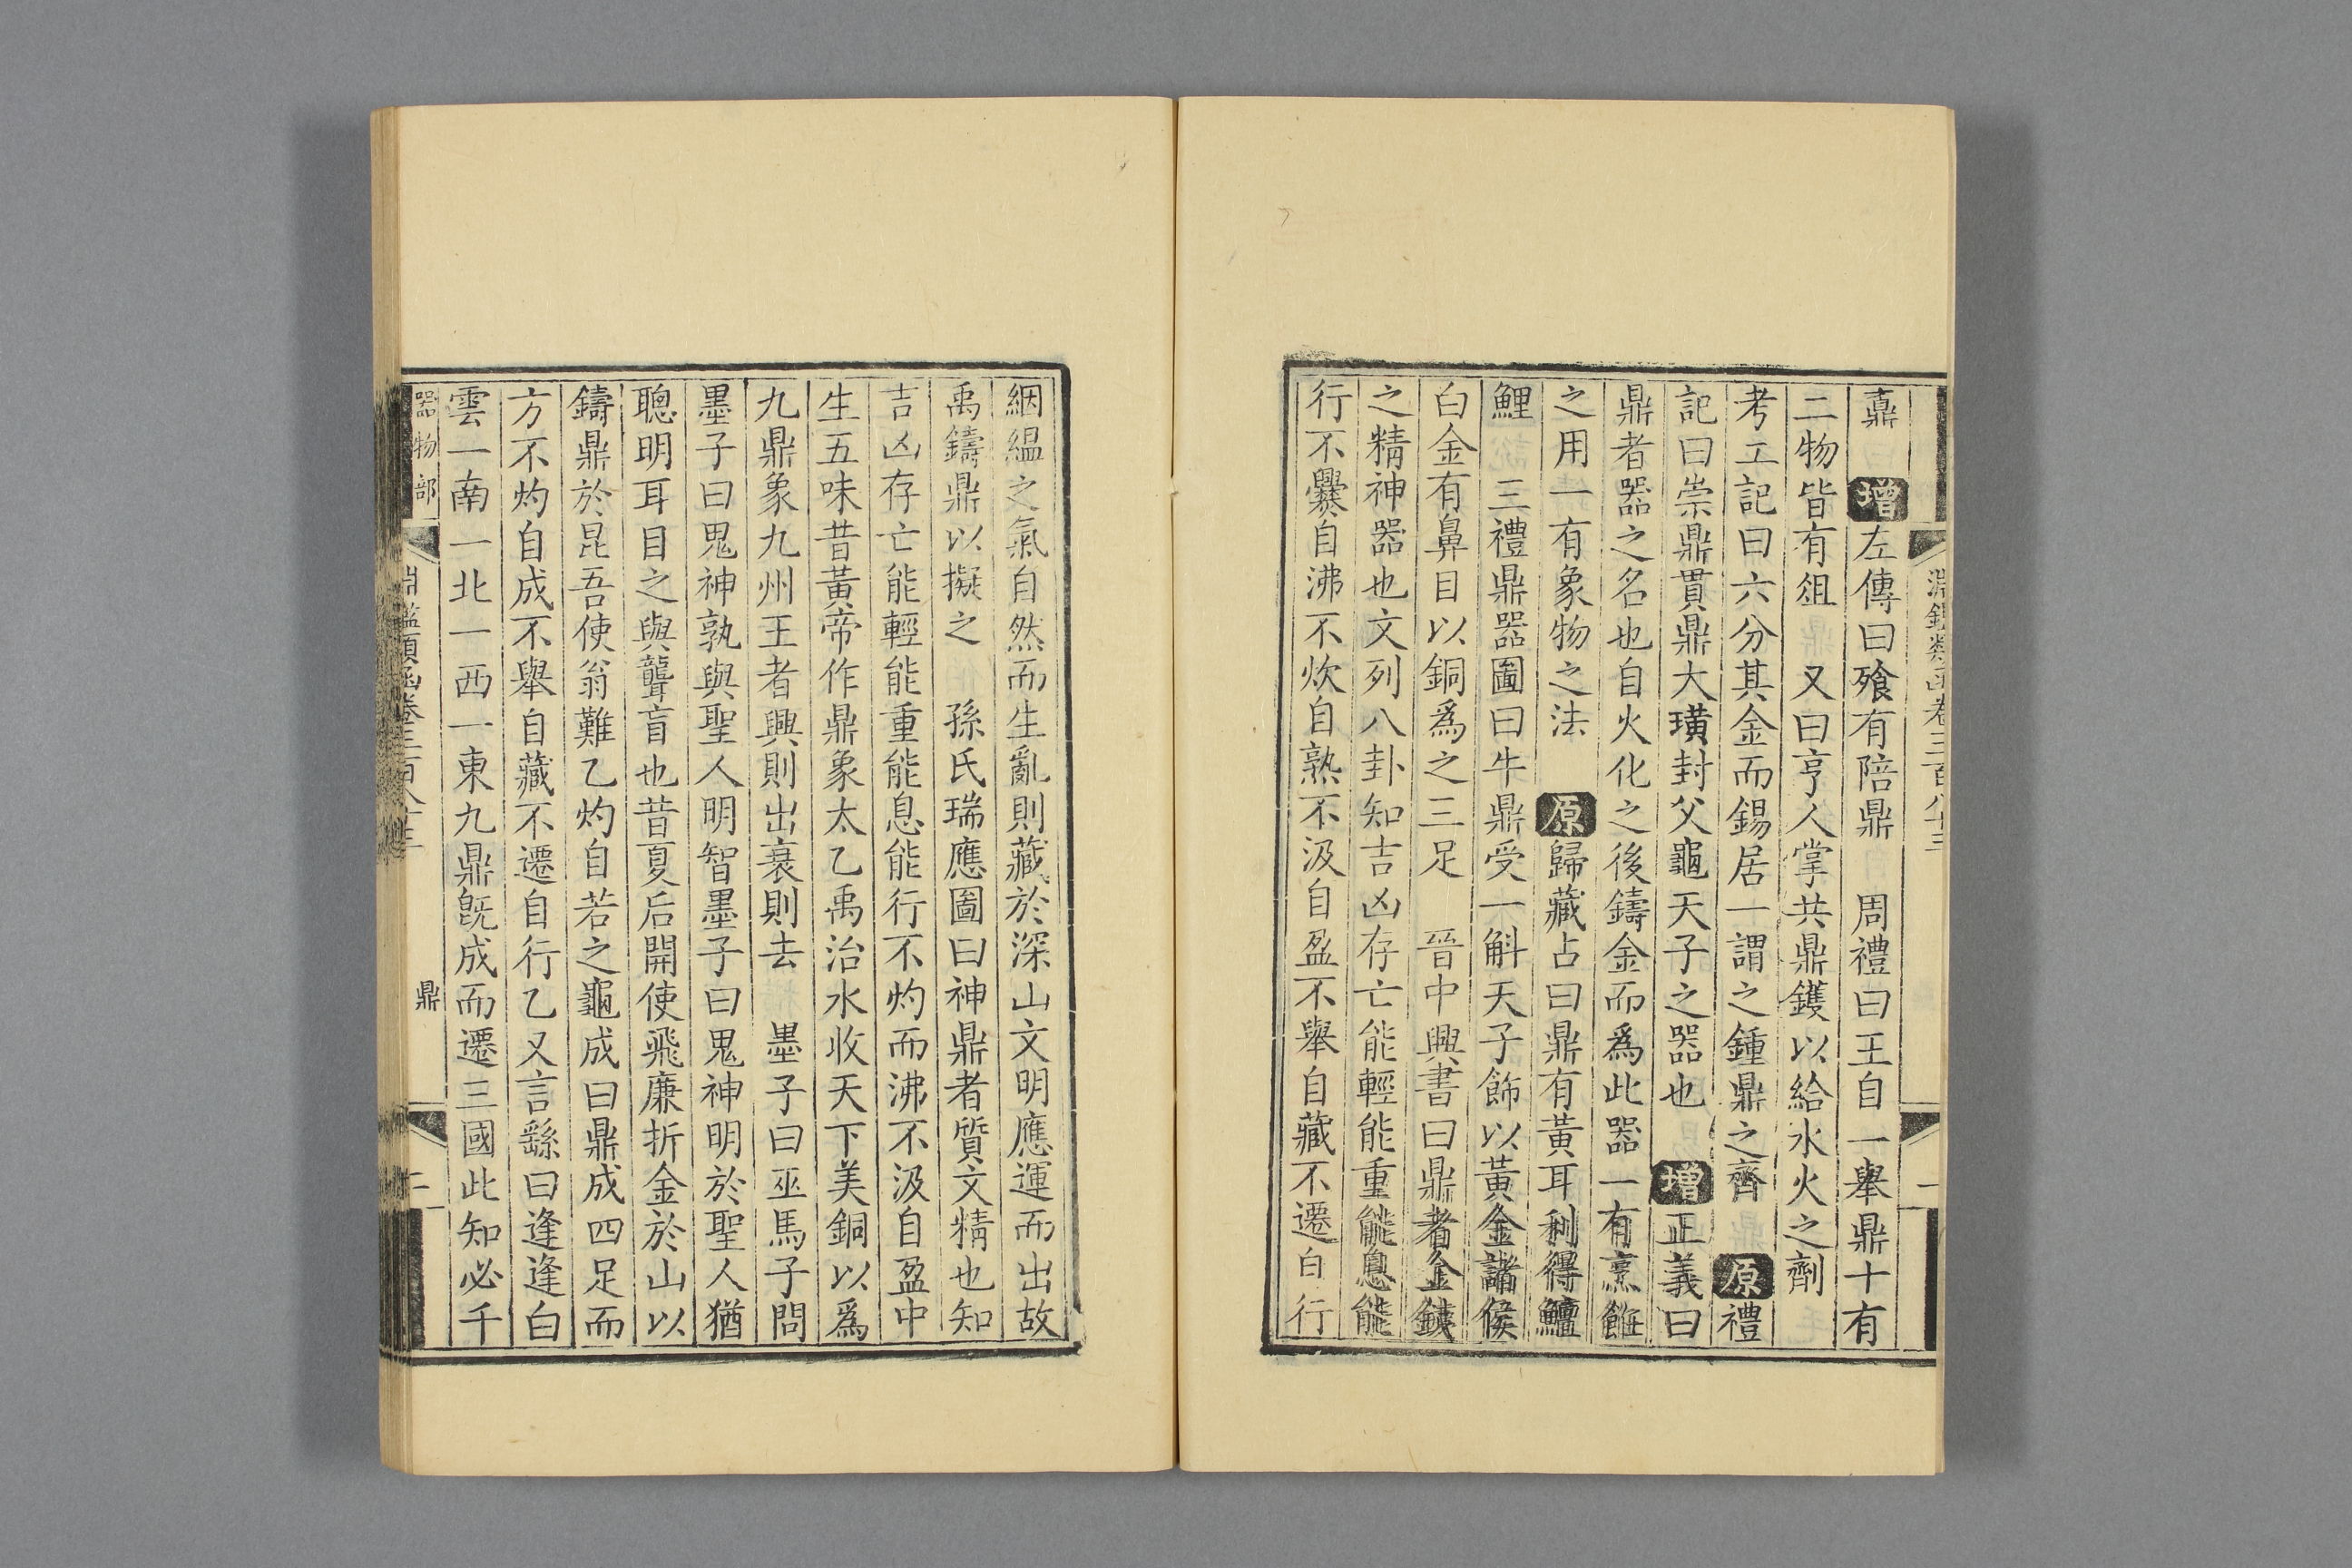 淵鑑類函卷三百八十三
鼒 增 左傳曰飱有陪鼎 周禮曰王自一舉鼎十有
二物皆有俎 又曰亨人掌共鼎鑊以給水火之劑
考工記曰六分其金而錫居一謂之鍾鼎之齊 原 禮
記曰崇鼎貫鼎大璜封父龜天子之器也 增 正義曰
鼎者器之名也自火化之後鑄金而爲此器一有烹飪
之用一有象物之法 原 歸藏占曰鼎有黃耳利得鱣
鯉 三禮鼎器圖曰牛鼎受一斛天子飾以黃金諸侯
白金有鼻目以銅爲之三足 晉中興書曰鼎者金鐵
之精神器也文列八卦知吉凶存亡能輕能重能息能
行不爨自沸不炊自熟不汲自盈不舉自藏不遷自行
絪緼之氣自然而生亂則藏於深山文明應運而出故
禹鑄鼎以擬之 孫氏瑞應圖曰神鼎者質文精也知
吉凶存亡能輕能重能息能行不灼而沸不汲自盈中
生五味昔黃帝作鼎象太乙禹治水收天下美銅以爲
九鼎象九州王者興則出衰則去 墨子曰巫馬子問
墨子曰鬼神孰與聖人明智墨子曰鬼神明於聖人猶
聰明耳目之與聾盲也昔夏后開使飛廉折金於山以
鑄鼎於昆吾使翁難乙灼自若之龜成曰鼎成四足而
方不灼自成不舉自藏不遷自行乙又言繇曰逢逢白
雲一南一北一西一東九鼎旣成而遷三國此知必千
器物部 淵鑑類函卷三百八十三 鼎 二